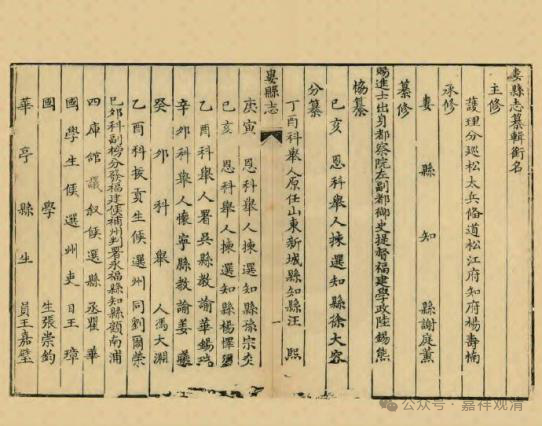 婁縣志纂輯銜名
主修
護理分巡松太兵備道松江府知府楊壽楠
承修
婁縣知縣謝庭薰
纂修
賜進士出身都察院左副都御史提督福建學政陸錫熊
協纂
己亥恩科舉人揀選知縣徐大容
分纂
丁酉科舉人原任山東新城縣知縣汪熙
婁縣志
一
庚寅恩科舉人揀選知縣孫宗炎
己亥恩科舉人揀選知縣楊懌
丁酉科舉人署吳縣教諭華錫瑞
辛卯科舉人懷寧縣教諭姜藻
癸卯科舉人馮大淵
乙酉科拔貢生候選州同劉爾榮
己卯科副榜分發福建候補州判署永福縣知縣顧南浦
四庫館議叙候選縣丞瞿華
國學生候選州吏目王璋
國學生張崇鈞
華亭縣生員王嘉璧
公众号·嘉祥观清